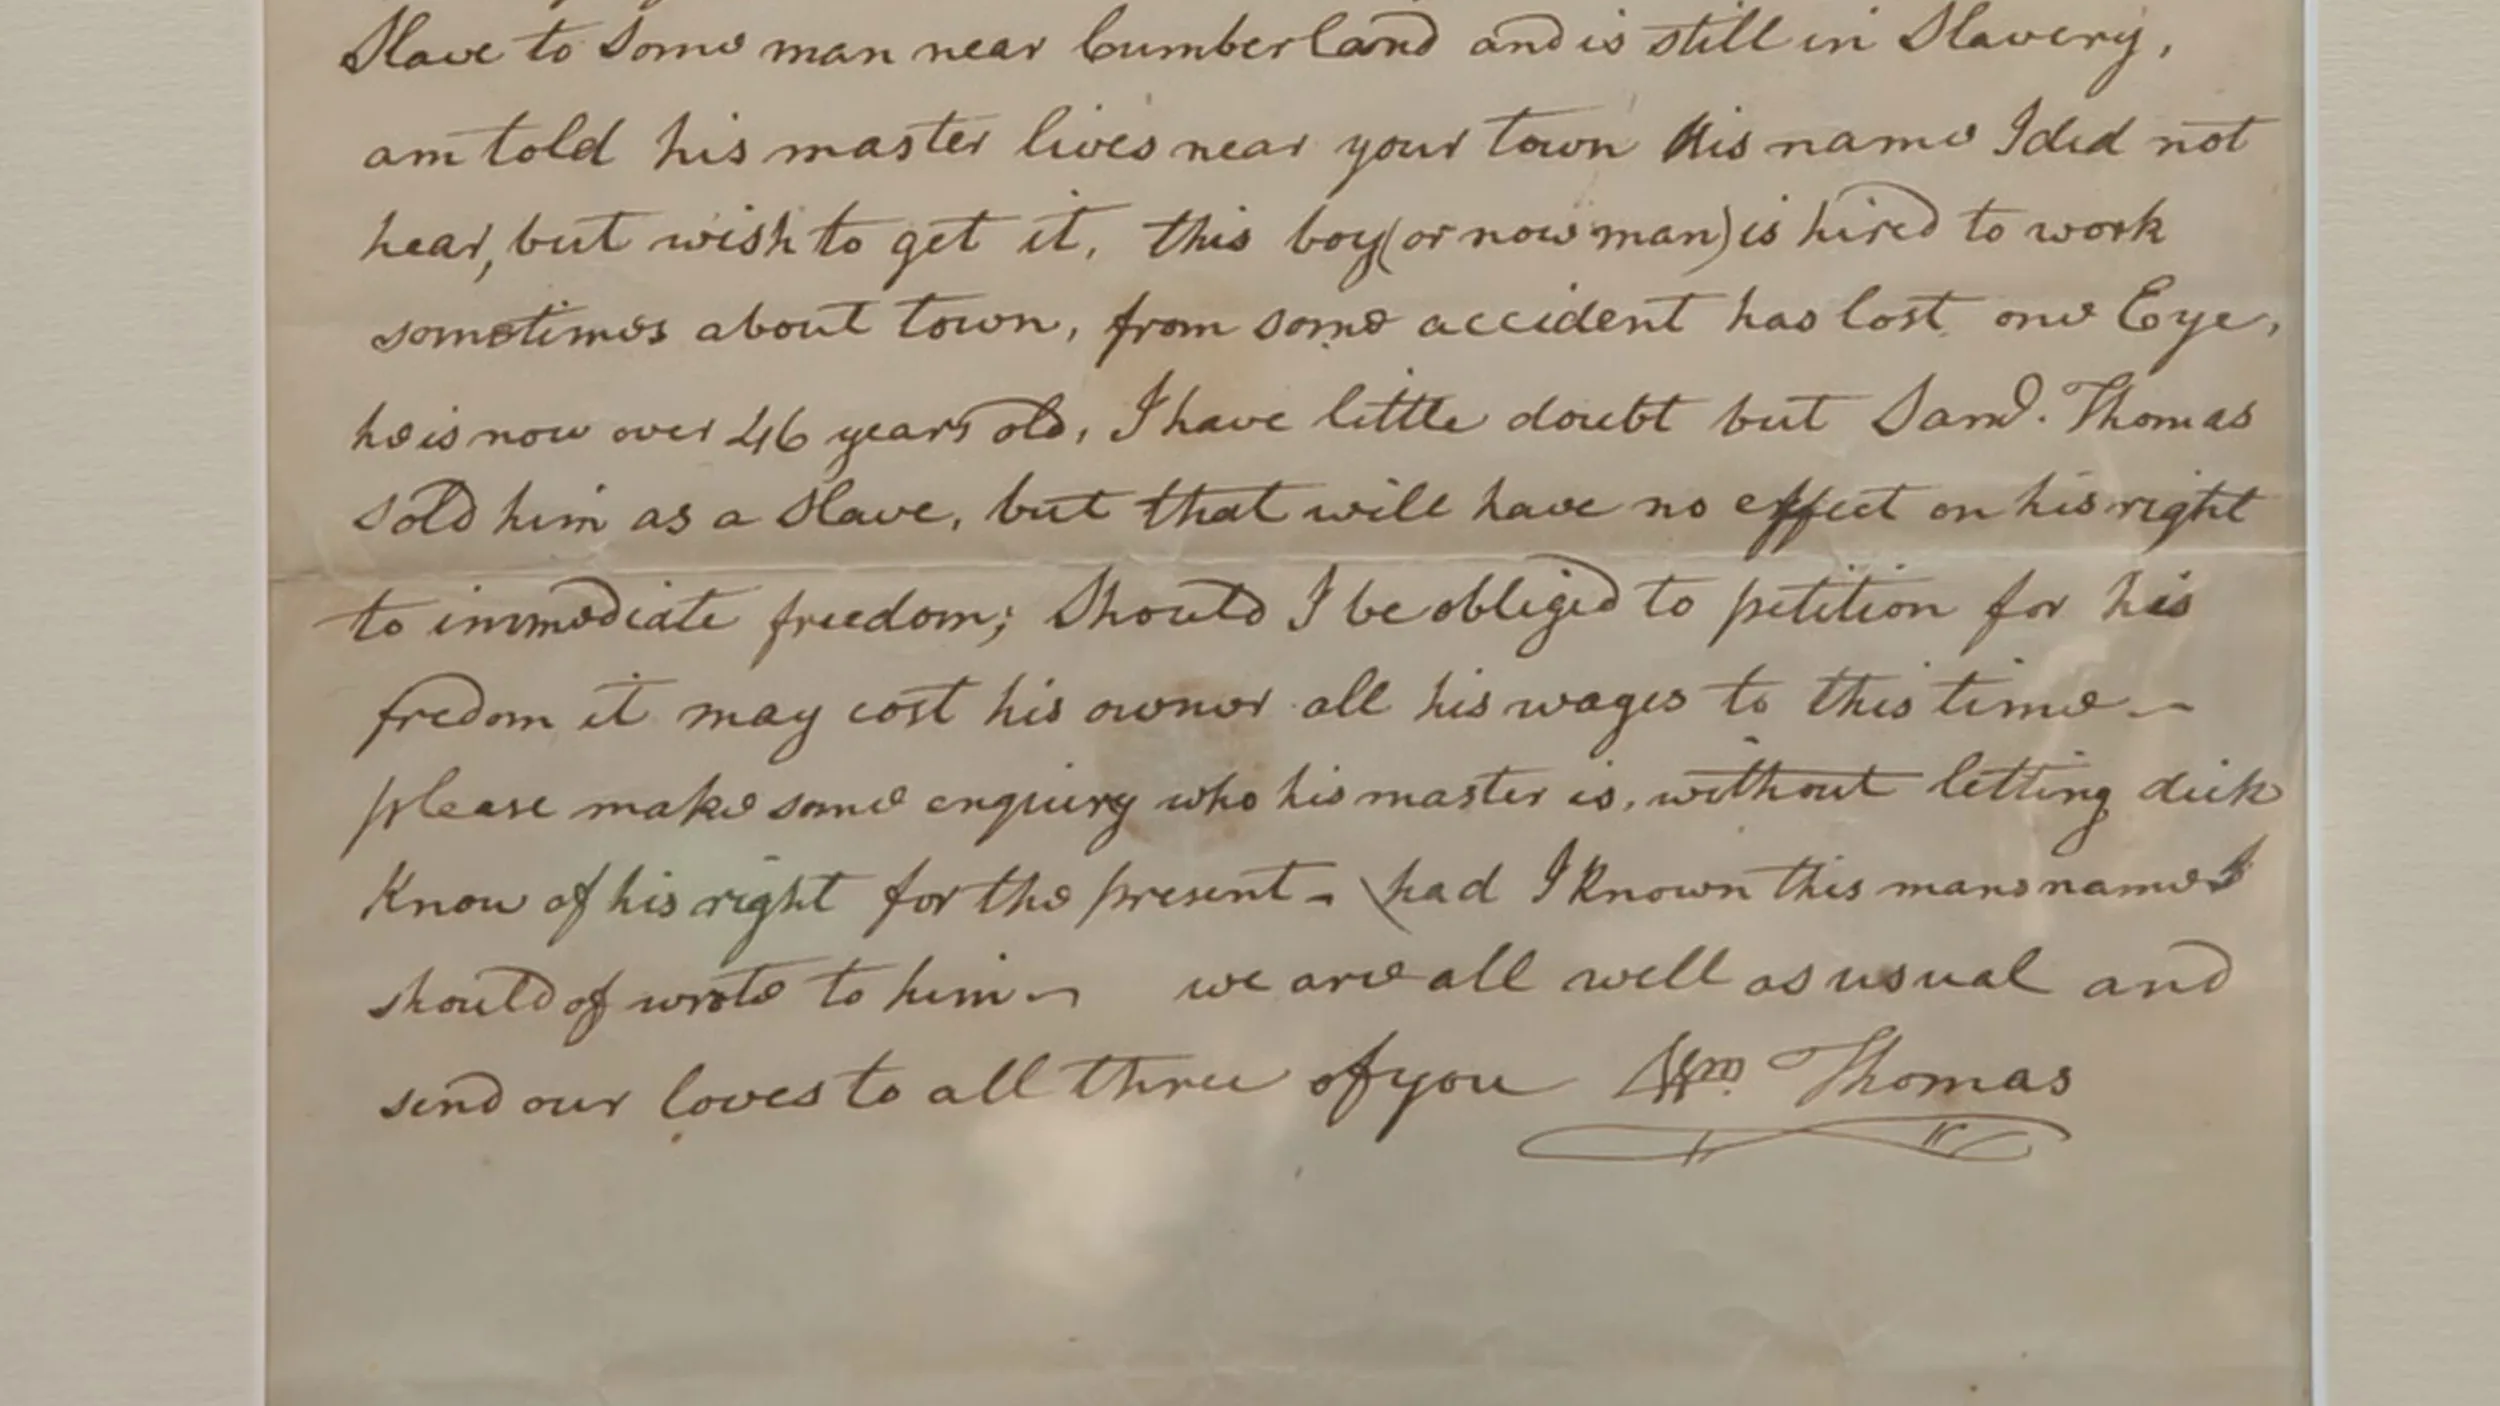 Slave to some man near Cumberland and is still in Slavery,
am told his master lives near your town His name I did not
hear, but wish to get it, this boy (or now man) is hired to work
sometimes about town, from some accident has lost one Eye,
he is now over 46 years old, I have little doubt but Saml. Thomas
sold him as a Slave, but that will have no effect on his right
to immediate freedom; Should I be obliged to petition for his
fredom it may cost his owner all his wages to this time —
please make some enquiry who his master is, without letting dick
Know of his right for the present - had I known this mans name I
should of wrote to him — we are all well as usual and
send our loves to all three of you Wm. Thomas